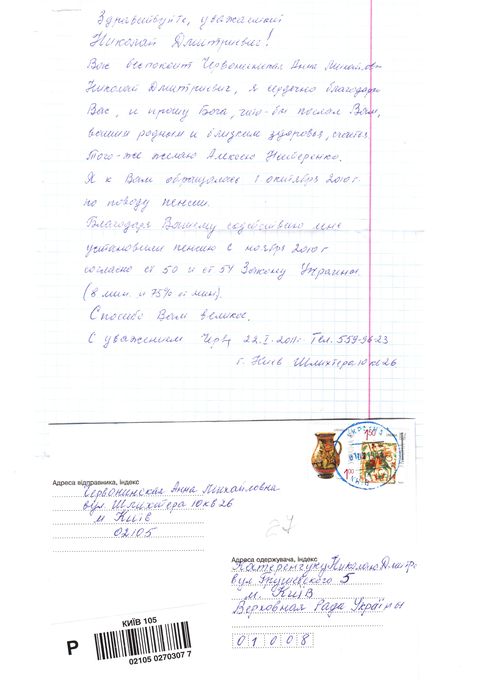 Здравствуйте, уважаемый
Николай Дмитриевич!
Вас беспокоит Червонинская Анна Михайловна
Николай Дмитриевич, я сердечно благодарю
Вас, и прошу Бога, что-бы послал Вам,
вашим родным и близким здоровья, счастья.
Того-же желаю Алексею Нестеренко.
Я к Вам обращалась 1 октября 2010 г
по поводу пенсии.
Благодаря Вашему содействию мне
установили пенсию с ноября 2010 г
согласно ст 50 и ст 54 Закону Украины
(8 мин. и 75% от мин).
Спасибо Вам великое.
С уважением 22.I-2011г Тел. 559-96-23
г. Киев Шлихтера 10 кв 26
УКРАЇНА
1.50
Адреса відправника, індекс
Червонинская Анна Михайловна
вул Шлихтера 10 кв 26
м Київ
02105
27
Адреса одержувача, індекс
Катеренчуку Николаю Дмитр
вул Грушевского 5
м. Київ
Верховная Рада Україны
01008
КИЇВ 105
P
02105 0270307 7